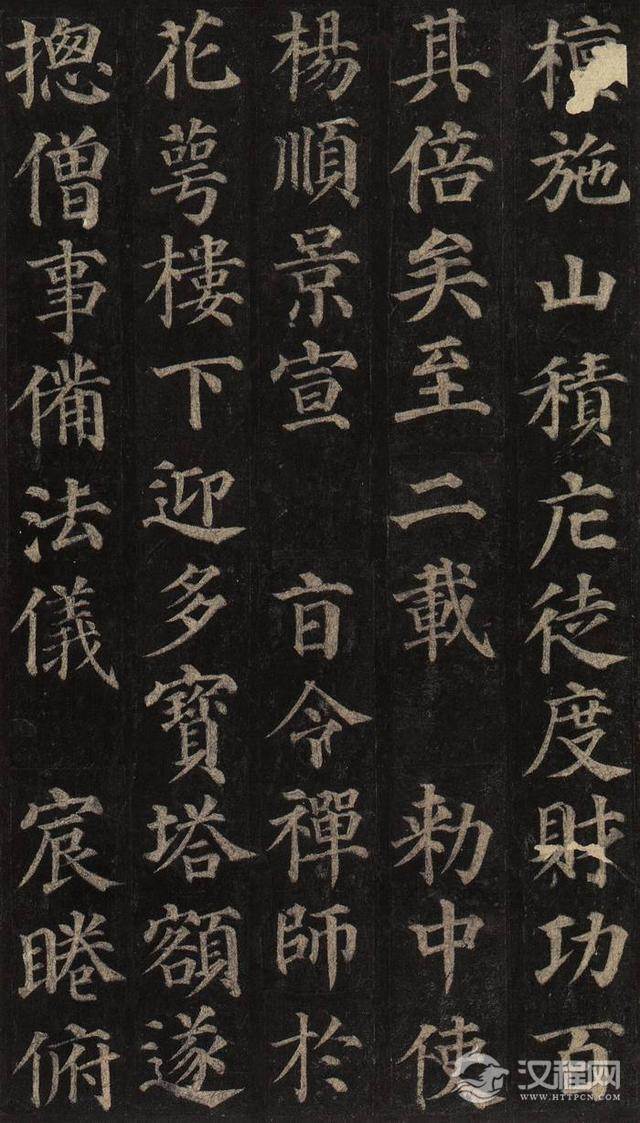 檀施山積庀徒度財功百
其倍矣至二載 勅中使
楊順景宣 旨令禪師於
花萼樓下迎多寶塔額遂
揔僧事備法儀 宸睠俯
汉程网
WWW.HTTPCN.COM